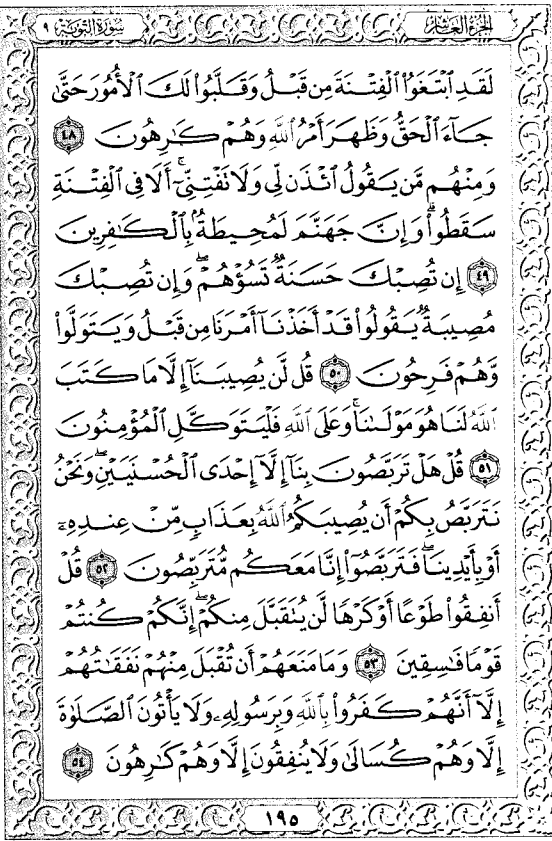 الجزء العاشر
سورة التوبة ٩
لَقَدِ ٱبْتَغَوُا۟ ٱلْفِتْنَةَ مِن قَبْلُ وَقَلَّبُوا۟ لَكَ ٱلْأُمُورَ حَتَّىٰ
جَآءَ ٱلْحَقُّ وَظَهَرَ أَمْرُ ٱللَّهِ وَهُمْ كَـٰرِهُونَ ٤٨
وَمِنْهُم مَّن يَقُولُ ٱئْذَن لِّى وَلَا تَفْتِنِّىٓ ۚ أَلَا فِى ٱلْفِتْنَةِ
سَقَطُوا۟ ۗ وَإِنَّ جَهَنَّمَ لَمُحِيطَةٌۢ بِٱلْكَـٰفِرِينَ
٤٩ إِن تُصِبْكَ حَسَنَةٌ تَسُؤْهُمْ ۖ وَإِن تُصِبْكَ
مُصِيبَةٌ يَقُولُوا۟ قَدْ أَخَذْنَآ أَمْرَنَا مِن قَبْلُ وَيَتَوَلَّوا۟
وَّهُمْ فَرِحُونَ ٥٠ قُل لَّن يُصِيبَنَآ إِلَّا مَا كَتَبَ
ٱللَّهُ لَنَا هُوَ مَوْلَىٰنَا ۚ وَعَلَى ٱللَّهِ فَلْيَتَوَكَّلِ ٱلْمُؤْمِنُونَ
٥١ قُلْ هَلْ تَرَبَّصُونَ بِنَآ إِلَّآ إِحْدَى ٱلْحُسْنَيَيْنِ ۖ وَنَحْنُ
نَتَرَبَّصُ بِكُمْ أَن يُصِيبَكُمُ ٱللَّهُ بِعَذَابٍ مِّنْ عِندِهِۦٓ
أَوْ بِأَيْدِينَا ۖ فَتَرَبَّصُوٓا۟ إِنَّا مَعَكُم مُّتَرَبِّصُونَ ٥٢ قُلْ
أَنفِقُوا۟ طَوْعًا أَوْ كَرْهًا لَّن يُتَقَبَّلَ مِنكُمْ ۖ إِنَّكُمْ كُنتُمْ
قَوْمًا فَـٰسِقِينَ ٥٣ وَمَا مَنَعَهُمْ أَن تُقْبَلَ مِنْهُمْ نَفَقَـٰتُهُمْ
إِلَّآ أَنَّهُمْ كَفَرُوا۟ بِٱللَّهِ وَبِرَسُولِهِۦ وَلَا يَأْتُونَ ٱلصَّلَوٰةَ
إِلَّا وَهُمْ كُسَالَىٰ وَلَا يُنفِقُونَ إِلَّا وَهُمْ كَـٰرِهُونَ ٥٤
١٩٥